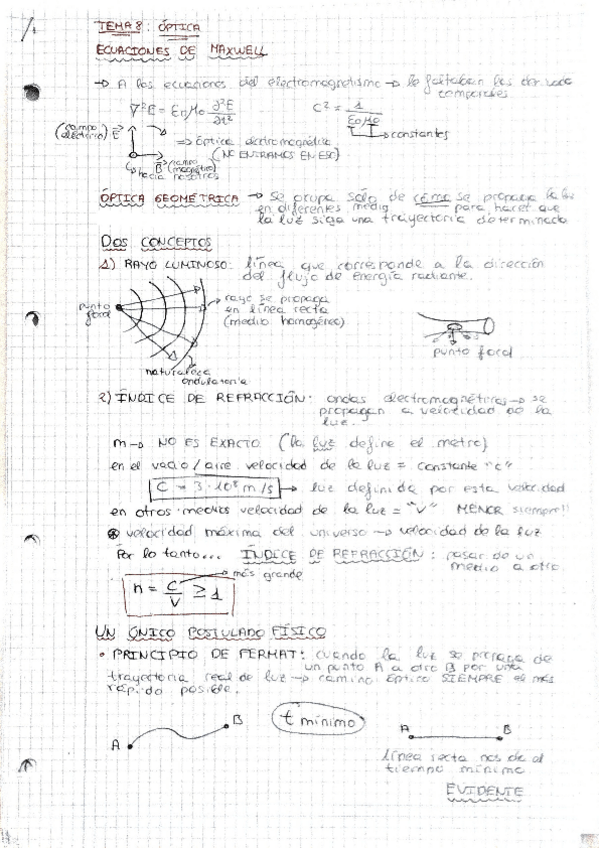 TEMA 8: ÓPTICA
ECUACIONES DE MAXWELL
→ A las ecuaciones del electromagnetismo → le faltaban las derivadas
temporales
∇²E = ε₀μ₀ ∂²E/∂t²
C² = 1/ε₀μ₀
constantes
(campo eléctrico) E
B (campo magnético)
hacia nosotros
⇒ óptica electromagnética
(NO ENTRAMOS EN ESO)
ÓPTICA GEOMÉTRICA → se ocupa sólo de cómo se propaga la luz
en diferentes medios para hacer que
la luz siga una trayectoria determinada
DOS CONCEPTOS
1) RAYO LUMINOSO: línea que corresponde a la dirección
del flujo de energía radiante.
punto
focal
rayo se propaga
en línea recta
(medio homogéneo)
naturaleza
ondulatoria
punto focal
2) ÍNDICE DE REFRACCIÓN: ondas electromagnéticas → se
propagan a velocidad de la
luz.
m → NO ES EXACTO (la luz define el metro)
en el vacío/aire velocidad de la luz = constante "c"
C = 3·10⁸ m/s → luz definida por esta velocidad
en otros medios velocidad de la luz = "V" MENOR siempre!!
⊛ velocidad máxima del universo → velocidad de la luz
Por lo tanto... ÍNDICE DE REFRACCIÓN: pasar de un
medio a otro
n = C/V ≥ 1
más grande
UN ÚNICO POSTULADO FÍSICO
• PRINCIPIO DE FERMAT: cuando la luz se propaga de
un punto A a otro B por una
trayectoria real de luz → camino óptico SIEMPRE el más
rápido posible.
A B
t mínimo
A B
línea recta nos da el
tiempo mínimo
EVIDENTE